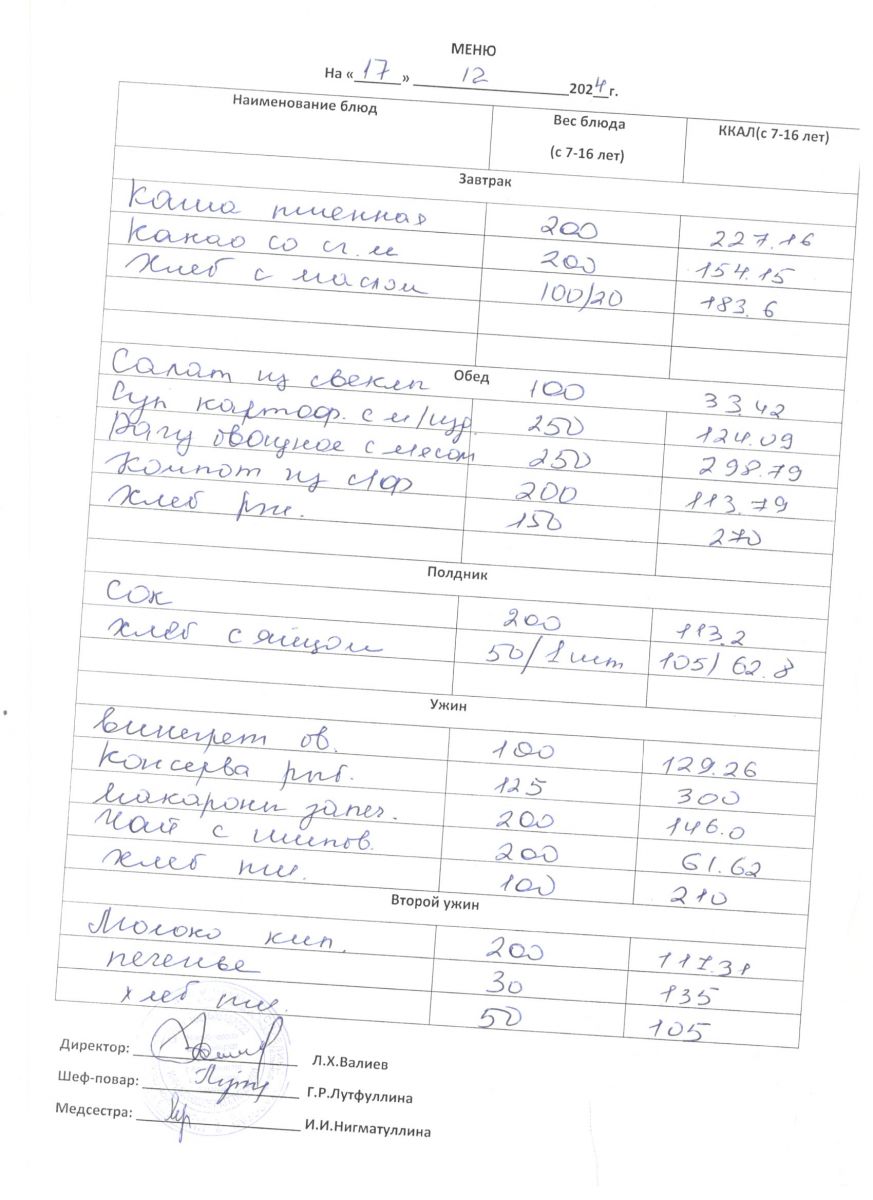 МЕНЮ
На «17» 12 2024 г.
Наименование блюд Вес блюда (с 7-16 лет) ККАЛ(с 7-16 лет)
Завтрак
Каша пшенная 200 227.16
Какао со сг. м 200 154.15
Хлеб с маслом 100/20 183.6
Обед
Салат из свеклы 100 33.42
Суп картоф. с м/изд. 250 124.09
Рагу овощное с мясом 250 298.79
Компот из с/ф 200 113.79
Хлеб рж. 150 270
Полдник
Сок 200 113.2
Хлеб с яйцом 50/1 шт 105/62.8
Ужин
Винегрет ов. 100 129.26
Консерва рыб. 125 300
Макароны запеч. 200 146.0
Чай с шипов. 200 61.62
Хлеб пш. 100 210
Второй ужин
Молоко кип. 200 117.31
печенье 30 135
хлеб пш. 50 105
Директор: Л.Х.Валиев
Шеф-повар: Г.Р.Лутфуллина
Медсестра: И.И.Нигматуллина